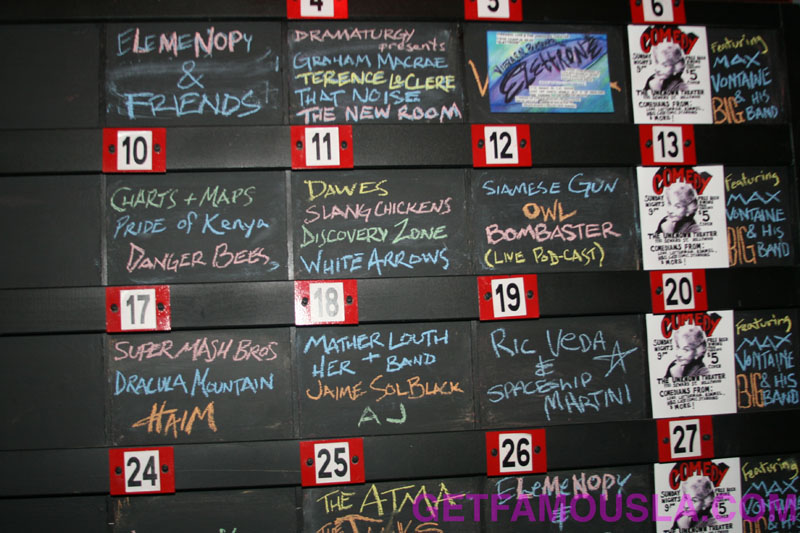 4
5
6
ELEMENOPY
&
FRIENDS
DRAMATURGY
presents
GRAHAM MACRAE
TERENCE LECLERE
THAT NOISE
THE NEW ROOM
COMEDY
SUNDAY
NIGHTS
$5
THE UNKNOWN THEATER
COMEDIANS FROM:
& MORE!
Featuring
MAX
VONTAINE
& HIS
BIG BAND
10
11
12
13
CHARTS + MAPS
PRIDE OF KENYA
DANGER BEES
DAWES
SLANG CHICKENS
DISCOVERY ZONE
WHITE ARROWS
SIAMESE GUN
OWL
BOMBASTER
(LIVE POD-CAST)
COMEDY
SUNDAY
NIGHTS
$5
THE UNKNOWN THEATER
COMEDIANS FROM:
& MORE!
Featuring
MAX
VONTAINE
& HIS
BIG BAND
17
18
19
20
SUPER MASH BROS
DRACULA MOUNTAIN
HAIM
MATHER LOUTH
HER + BAND
JAIME SOL BLACK
AJ
RIC VEDA
&
SPACESHIP
MARTINI
COMEDY
SUNDAY
NIGHTS
$5
COVER
THE UNKNOWN THEATER
COMEDIANS FROM:
& MORE!
Featuring
MAX
VONTAINE
& HIS
BIG BAND
24
25
26
27
THE ATMA
THE
ELEMENOPY
COMEDY
SUNDAY
NIGHTS
$5
Featuring
MAX
VONTAINE
& HIS
BIG BAND
GETFAMOUSLA.COM